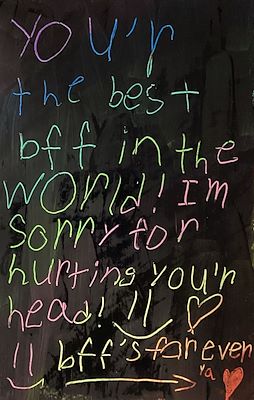 you'r
the best
bff in the
world! I'm
sorry for
hurting you'r
head!
bff's forever
ya